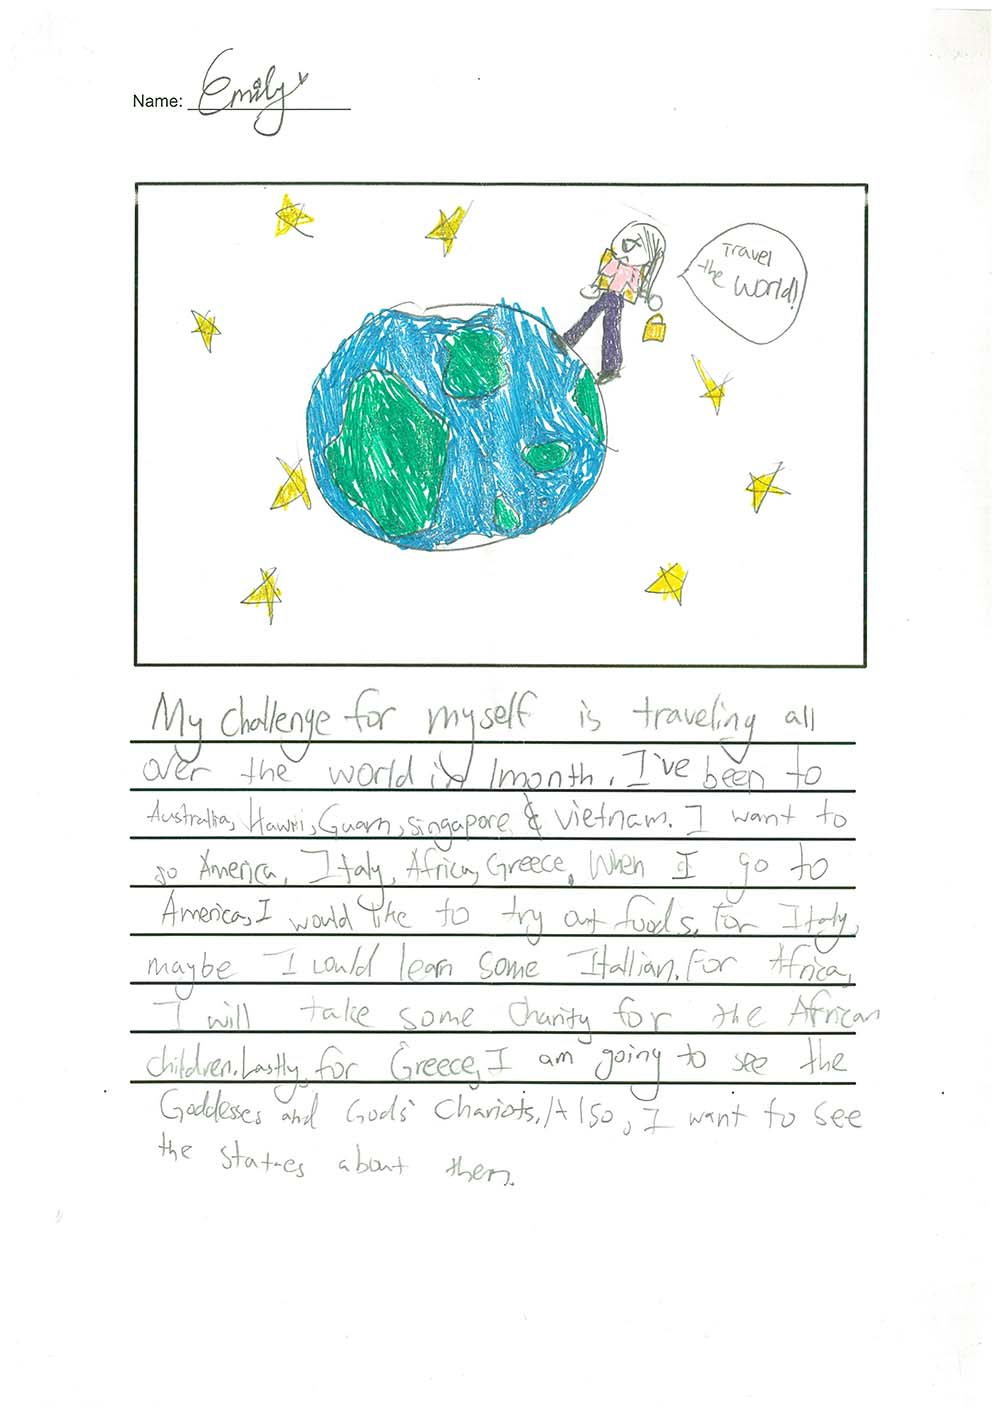 Name: Emily
Travel
the World!
My challenge for myself is traveling all
over the world in 1month. I've been to
Australia, Hawii, Guam, singapore & Vietnam. I want to
go America, Italy, Africa, Greece. When I go to
America, I would like to try out foods. For Italy,
maybe I could learn some Itallian. For Africa,
I will take some charity for the African
children. Lastly, for Greece, I am going to see the
Goddesses and Gods' Chariots. Also, I want to see
the statues about them.